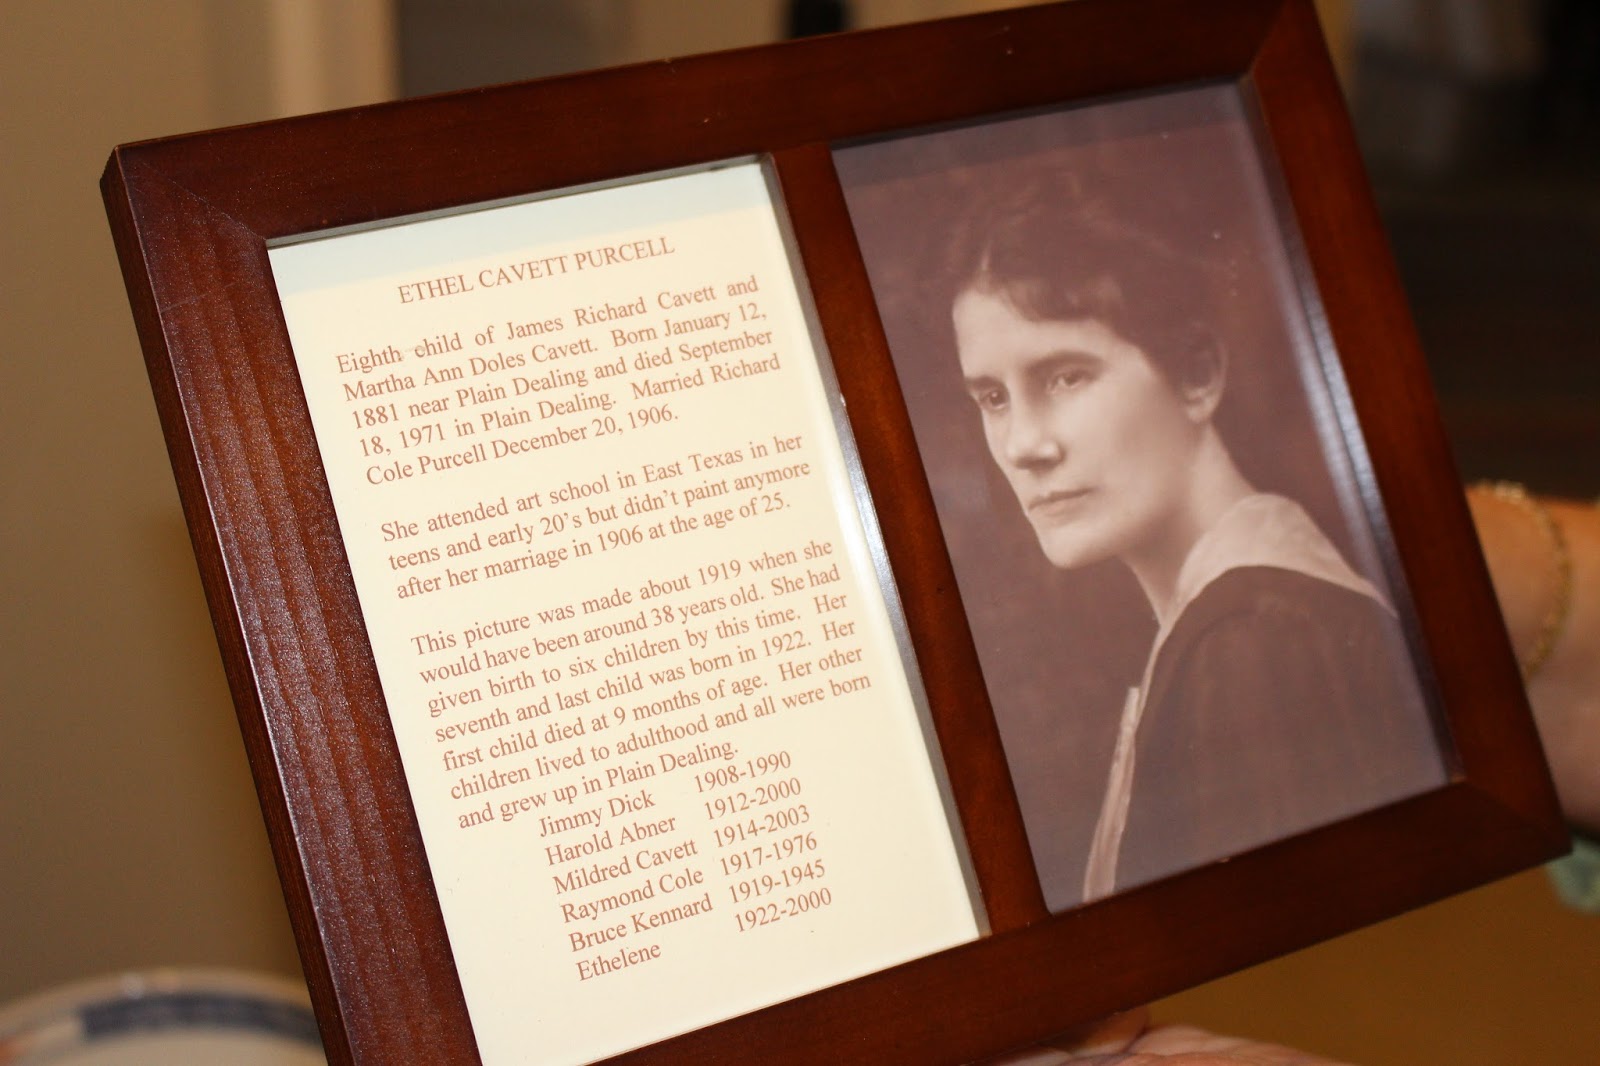 ETHEL CAVETT PURCELL
Eighth child of James Richard Cavett and
Martha Ann Doles Cavett. Born January 12,
1881 near Plain Dealing and died September
18, 1971 in Plain Dealing. Married Richard
Cole Purcell December 20, 1906.
She attended art school in East Texas in her
teens and early 20's but didn't paint anymore
after her marriage in 1906 at the age of 25.
This picture was made about 1919 when she
would have been around 38 years old. She had
given birth to six children by this time. Her
seventh and last child was born in 1922. Her
first child died at 9 months of age. Her other
children lived to adulthood and all were born
and grew up in Plain Dealing.
Jimmy Dick 1908-1990
Harold Abner 1912-2000
Mildred Cavett 1914-2003
Raymond Cole 1917-1976
Bruce Kennard 1919-1945
Ethelene 1922-2000